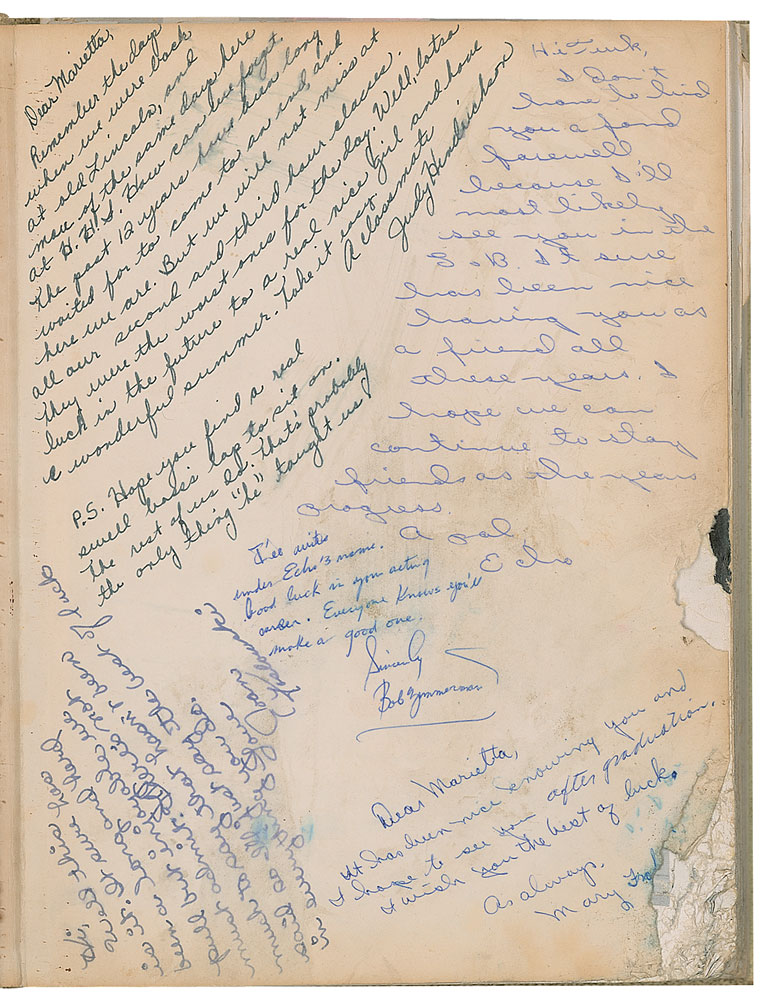 Dear Marietta,
Remember the days
when we were back
at old Lincoln, and
more of the same days here
at H.H.S. How can we forget.
The past 12 years have been long
waited for to come to an end, and
here we are. But we will not miss at
all our second and third hour classes.
They were the worst ones for the day. Well, lotsa
luck in the future to a real nice girl and have
a wonderful summer. Take it easy.
A classmate
Judy Hendrickson
P.S. Hope you find a real
swell boss's lap to sit on.
The rest of us do. That's probably
the only thing "he" taught us
Hi Turk,
I don't
have to bid
you a fond
farewell
because I'll
most likely
see you in the
S.O.B. It sure
has been nice
having you as
a friend all
these years. I
hope we can
continue to stay
friends as the years
progress.
A pal
Echo
I'll write
under Echo's name.
Good luck in your acting
career. Everyone knows you'll
make a good one.
Sincerely
Bob Zimmerman
Dear Marietta,
It has been nice knowing you and
I hope to see you after graduation.
I wish you the best of luck.
As always,
Mary
Hi,
Well this has
is it. It sure has
been a long and hard
pull but enjoyable we
must admit. There is not
much to say that hasn't been
said so I'll just say the best of luck
in everything you do.
Love
Joan